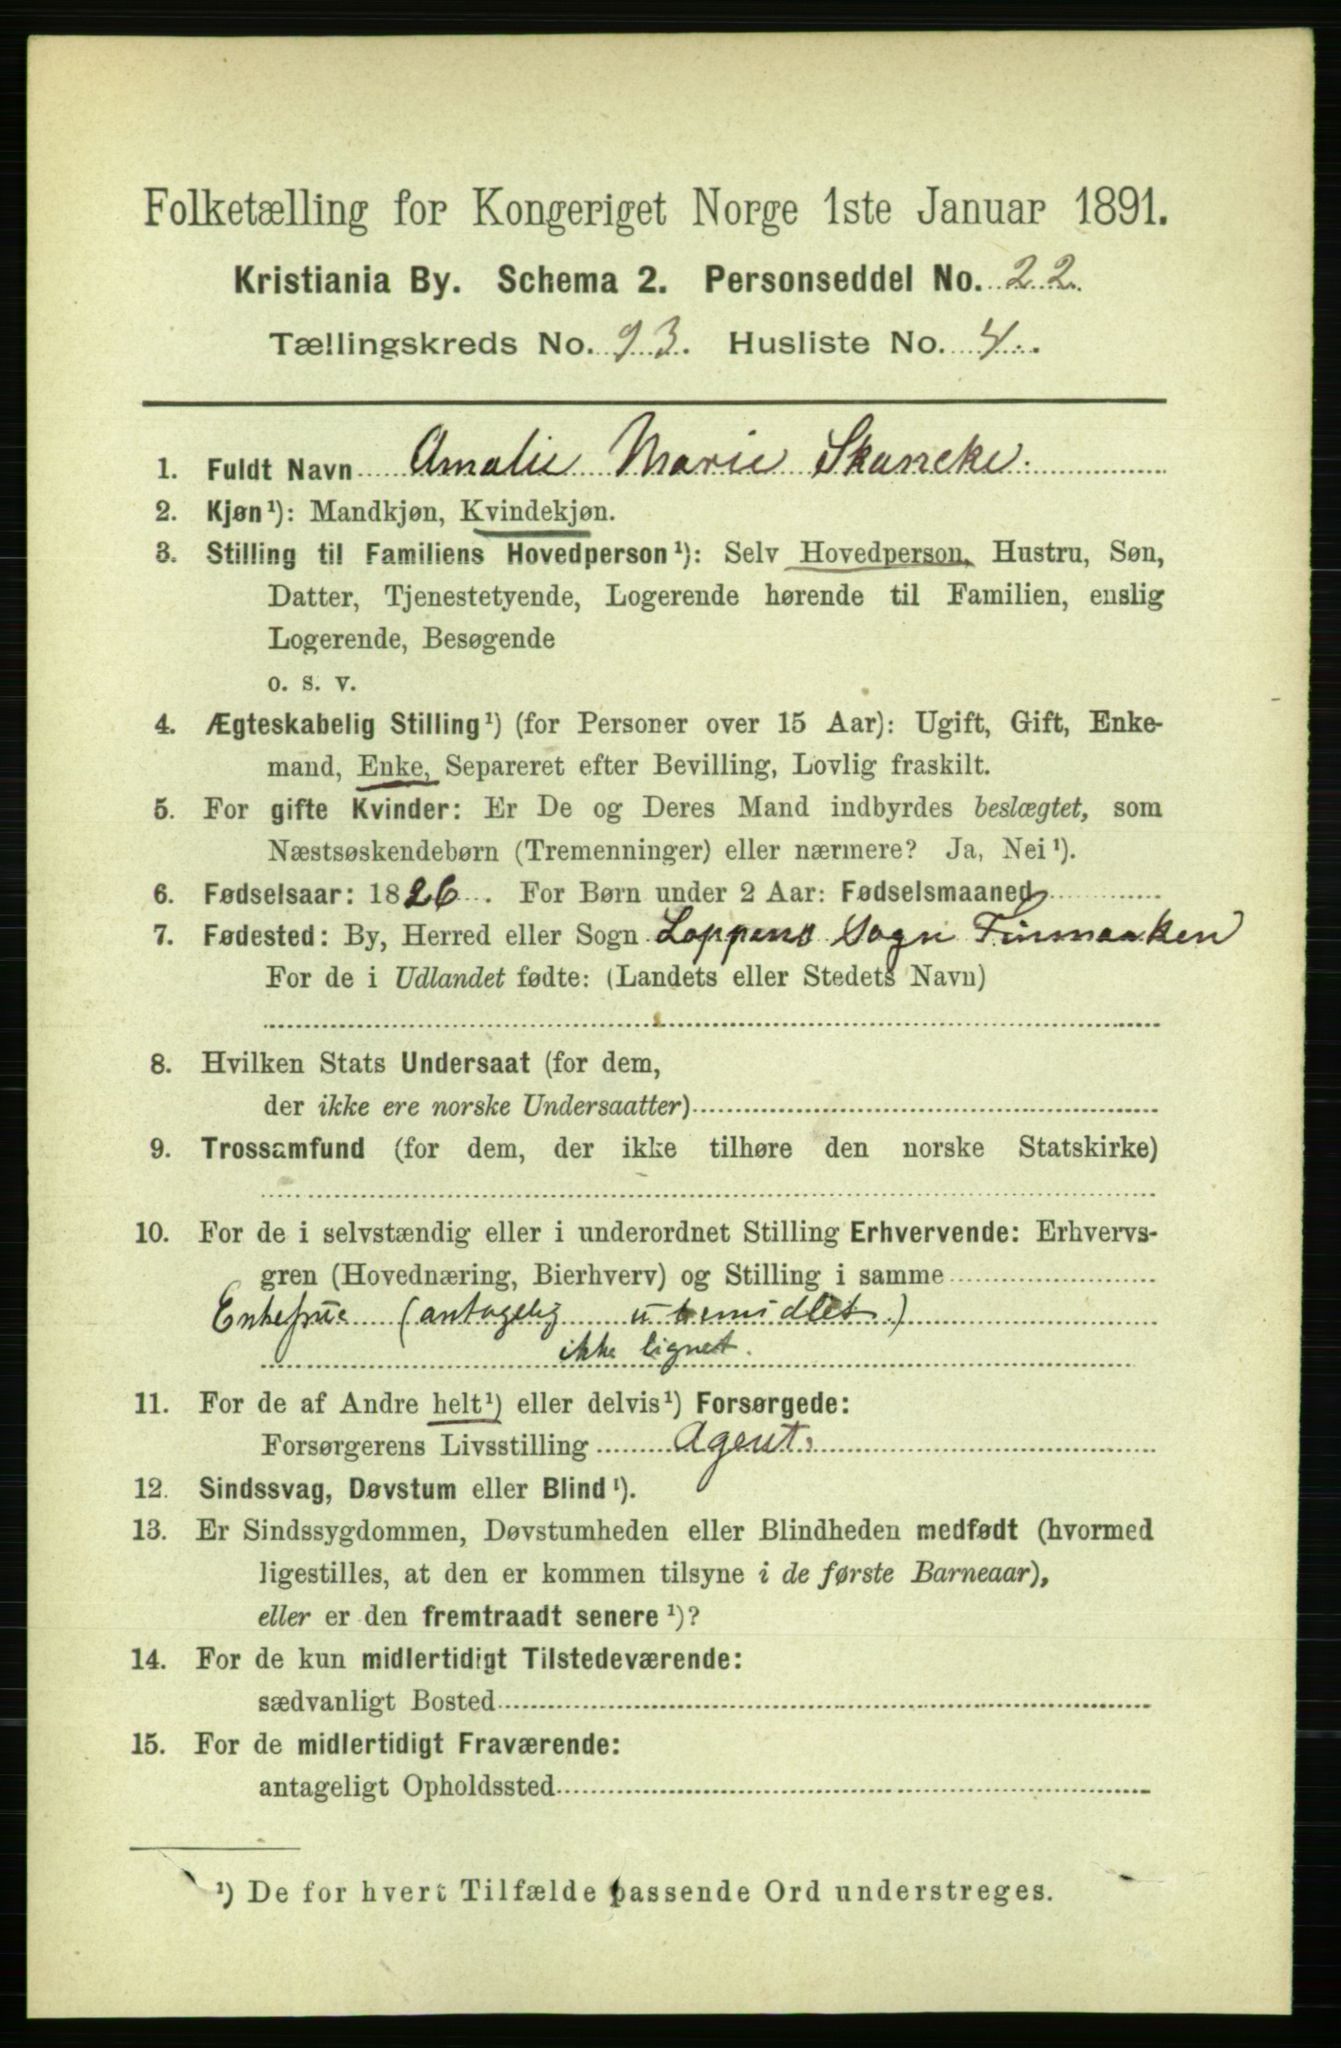 Folketælling for Kongeriget Norge 1ste Januar 1891.
Kristiania By. Schema 2. Personseddel No. 22.
Tællingskreds No. 93. Husliste No. 4.
1. Fuldt Navn Amalie Marie Skancke.
2. Kjøn¹): Mandkjøn, Kvindekjøn.
3. Stilling til Familiens Hovedperson¹): Selv Hovedperson, Hustru, Søn,
Datter, Tjenestetyende, Logerende hørende til Familien, enslig
Logerende, Besøgende
o. s. v.
4. Ægteskabelig Stilling¹) (for Personer over 15 Aar): Ugift, Gift, Enke-
mand, Enke, Separeret efter Bevilling, Lovlig fraskilt.
5. For gifte Kvinder: Er De og Deres Mand indbyrdes beslægtet, som
Næstsøskendebørn (Tremenninger) eller nærmere? Ja, Nei¹).
6. Fødselsaar: 1826. For Børn under 2 Aar: Fødselsmaaned
7. Fødested: By, Herred eller Sogn Loppens Sogn Finmarken
For de i Udlandet fødte: (Landets eller Stedets Navn)
8. Hvilken Stats Undersaat (for dem,
der ikke ere norske Undersaatter)
9. Trossamfund (for dem, der ikke tilhøre den norske Statskirke)
10. For de i selvstændig eller i underordnet Stilling Erhvervende: Erhvervs-
gren (Hovednæring, Bierhverv) og Stilling i samme
Enkefrue (antagelig ubemidlet)
ikke lignet.
11. For de af Andre helt¹) eller delvis¹) Forsørgede:
Forsørgerens Livsstilling Agent.
12. Sindssvag, Døvstum eller Blind¹).
13. Er Sindssygdommen, Døvstumheden eller Blindheden medfødt (hvormed
ligestilles, at den er kommen tilsyne i de første Barneaar),
eller er den fremtraadt senere¹)?
14. For de kun midlertidigt Tilstedeværende:
sædvanligt Bosted
15. For de midlertidigt Fraværende:
antageligt Opholdssted
¹) De for hvert Tilfælde passende Ord understreges.